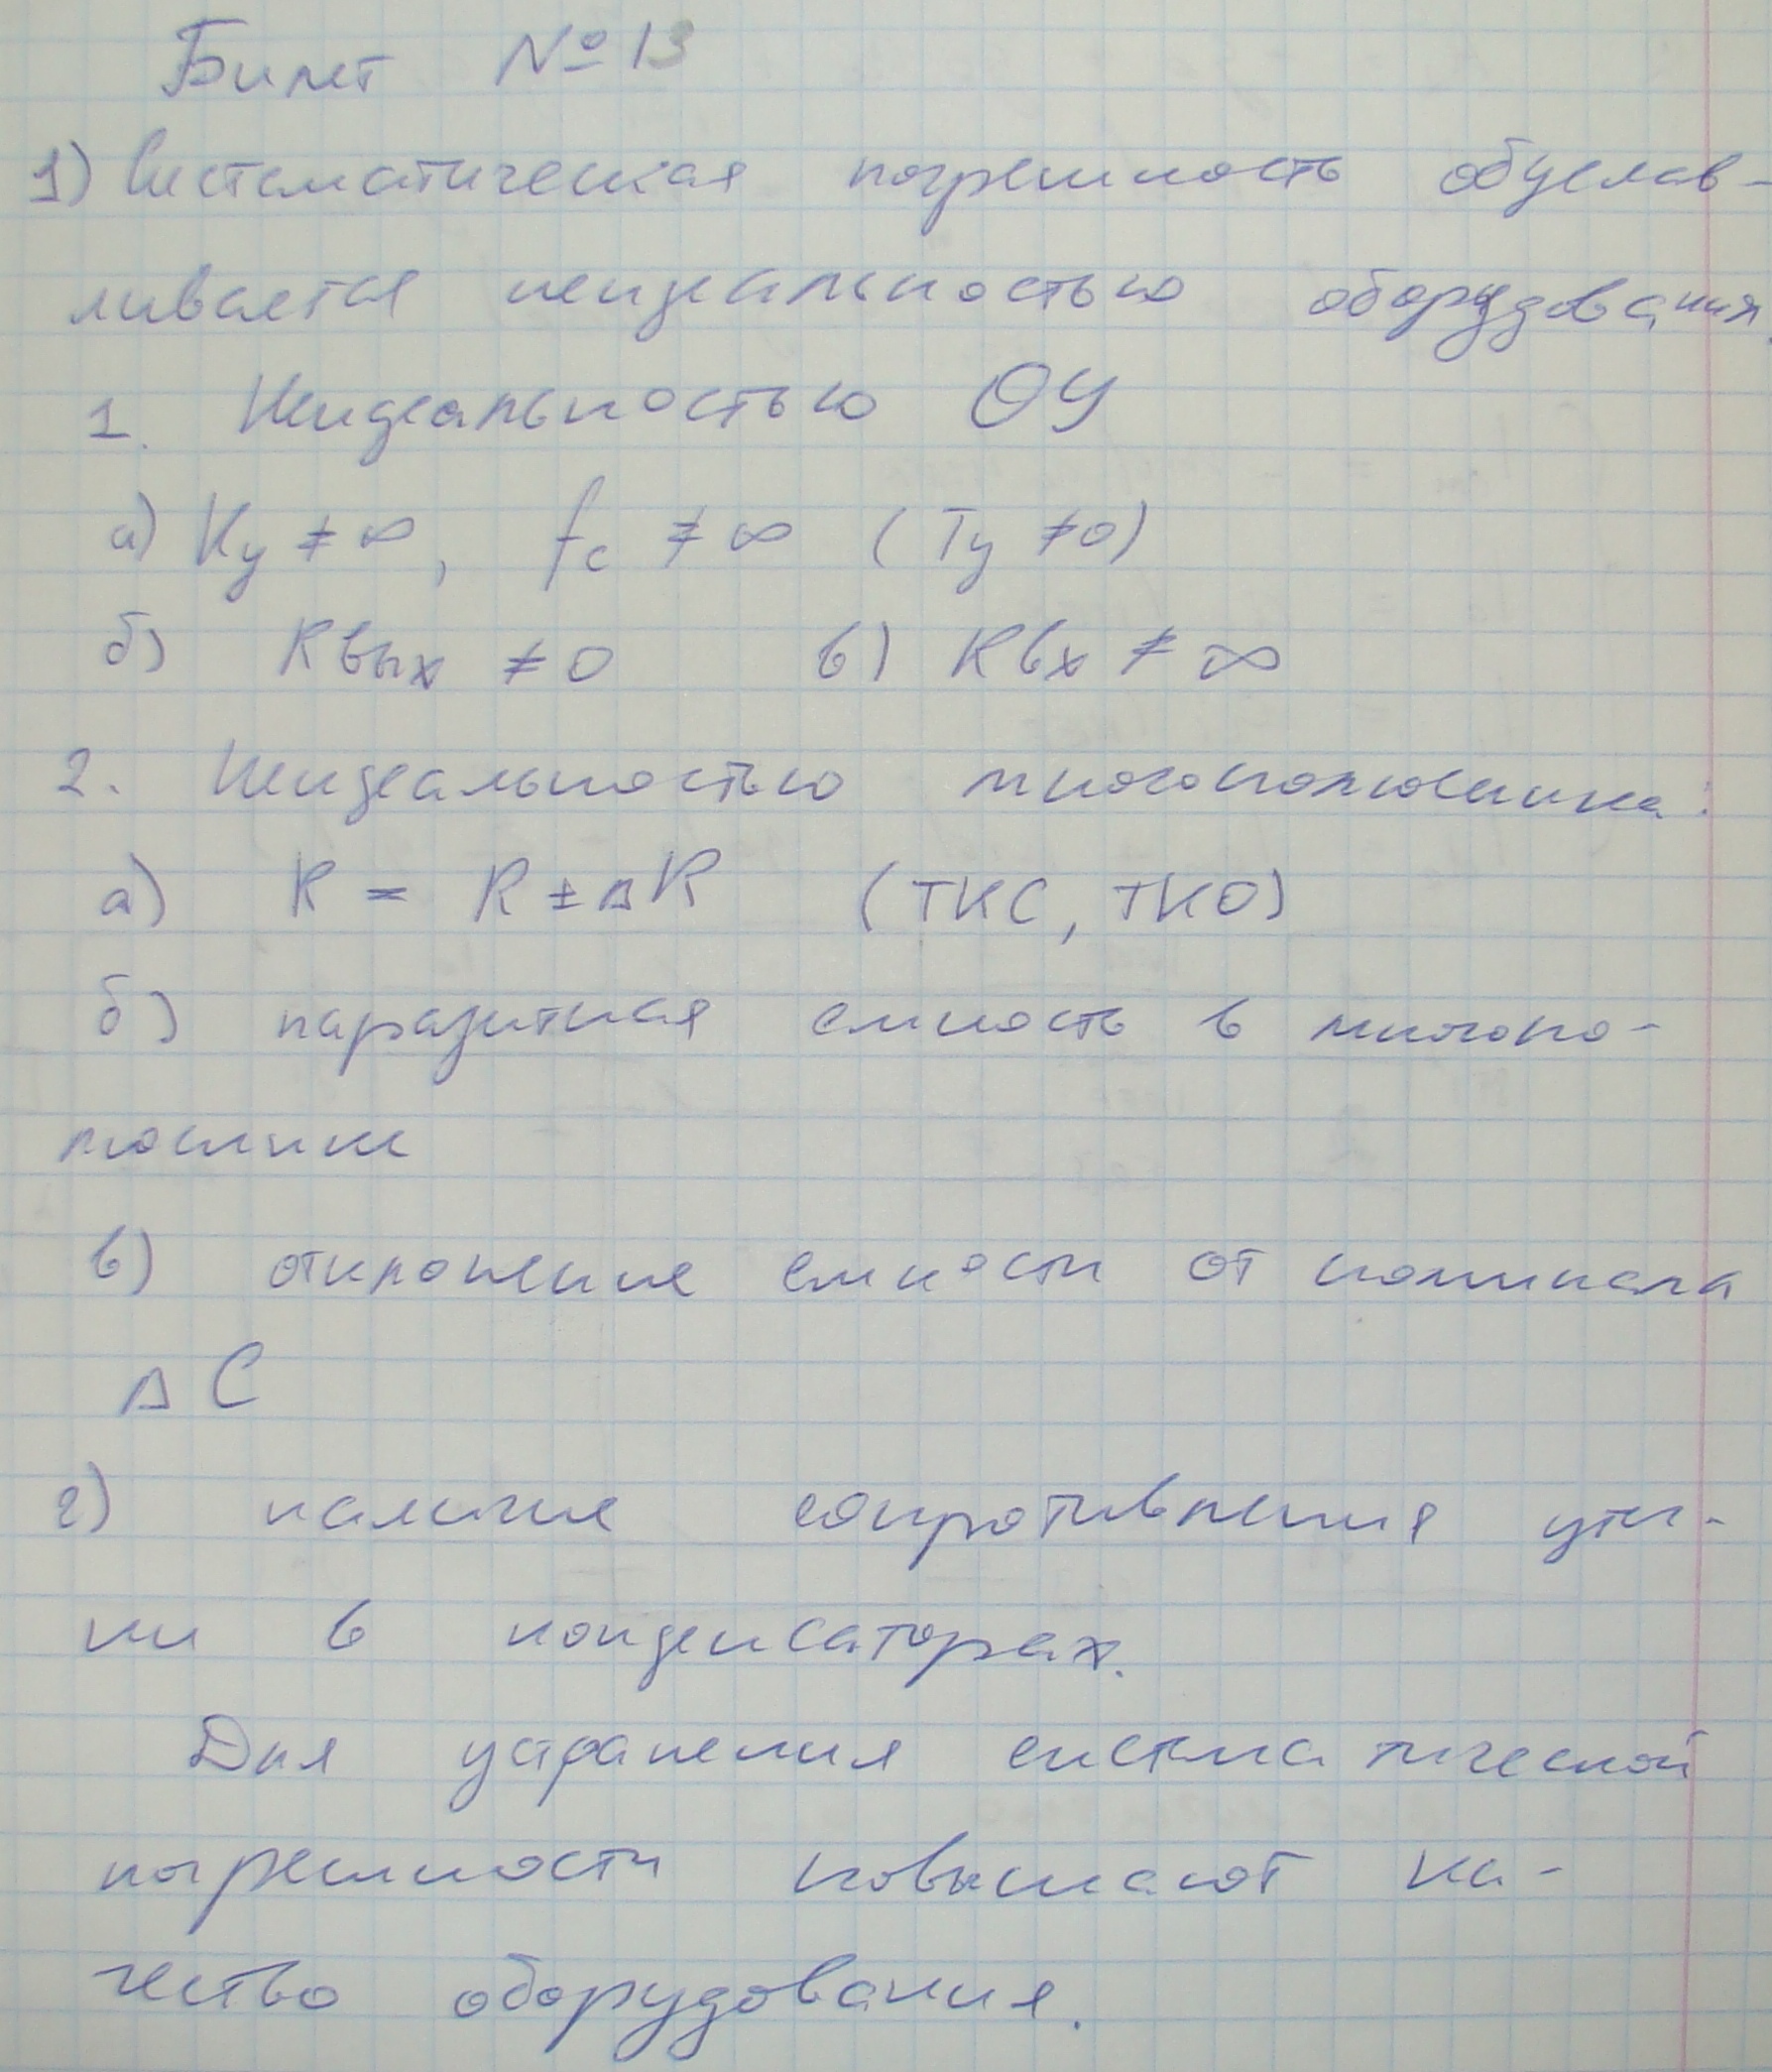 Билет № 13
1) Систематическая погрешность обуслав-
ливается неидеальностью оборудования.
1. Неидеальностью ОУ
а) Ку ≠ ∞, fc ≠ ∞ (Ту ≠ 0)
б) Rвых ≠ 0 в) Rвх ≠ ∞
2. Неидеальностью многополюсника:
а) R = R ± ΔR (ТКС, ТКО)
б) паразитная емкость в многопо-
люснике
в) отклонение емкости от номинала
ΔС
г) наличие сопротивления утеч-
ки в конденсаторах.
Для устранения систематической
погрешности повышают ка-
чество оборудования.